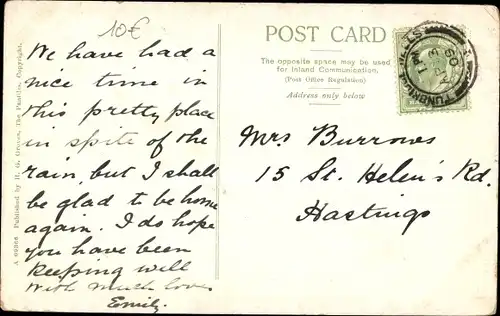 10€
We have had a
nice time in
this pretty place
in spite of the
rain, but I shall
be glad to be home
again. I do hope
you have been
keeping well
with much love
Emily.
POST CARD
The opposite space may be used
for Inland Communication,
(Post Office Regulation)
Address only below
Mrs Burrows
15 St. Helen's Rd.
Hastings
Published by H. G. Groves, The Pantiles, Copyright.
TUNBRIDGE WELLS